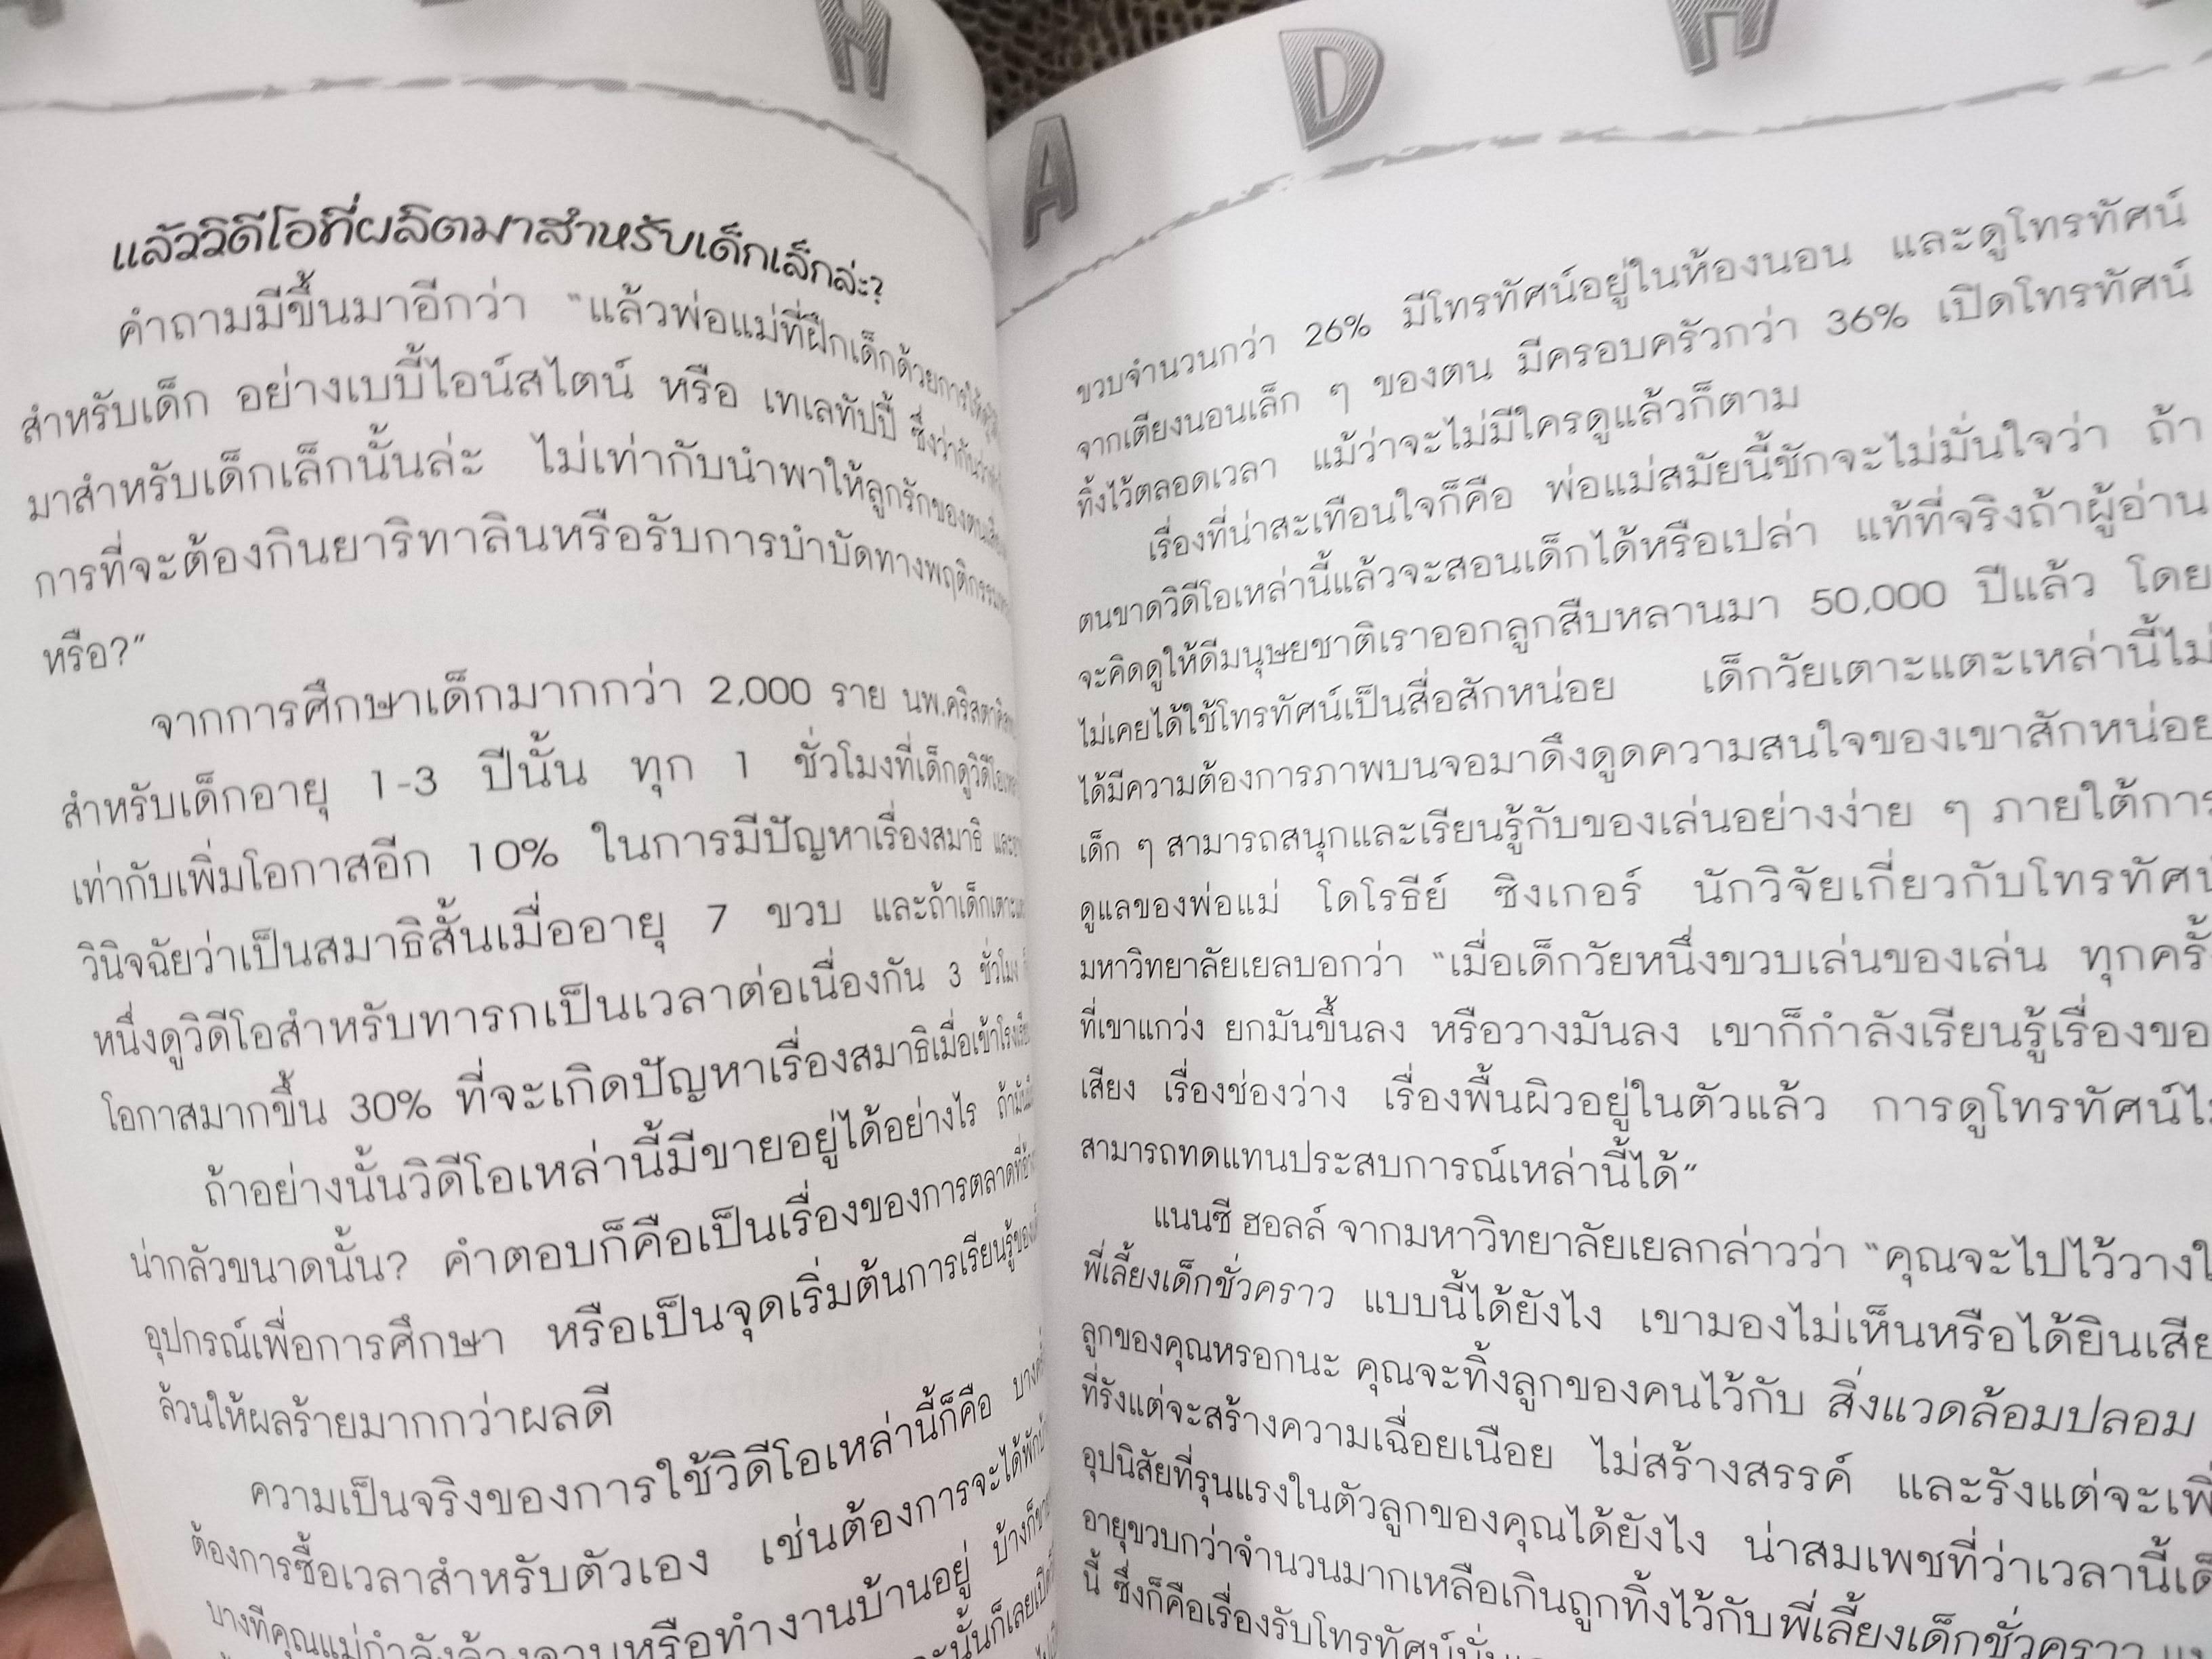 H
แล้ววิดีโอที่ผลิตมาสำหรับเด็กเล็กล่ะ?
คำถามมีขึ้นมาอีกว่า "แล้วพ่อแม่ที่ฝึกเด็กด้วยการให้
สำหรับเด็ก อย่างเบบี้ไอน์สไตน์ หรือ เทเลทัปปี้ ซึ่งว่ากันว่า
มาสำหรับเด็กเล็กนั้นล่ะ ไม่เท่ากับนำพาให้ลูกรักของตน
การที่จะต้องกินยาริทาลินหรือรับการบำบัดทางพฤติกรรม
หรือ?"
จากการศึกษาเด็กมากกว่า 2,000 ราย นพ.
สำหรับเด็กอายุ 1-3 ปีนั้น ทุก 1 ชั่วโมงที่เด็กดูวิดีโอ
เท่ากับเพิ่มโอกาสอีก 10% ในการมีปัญหาเรื่องสมาธิ
วินิจฉัยว่าเป็นสมาธิสั้นเมื่ออายุ 7 ขวบ และถ้าเด็ก
หนึ่งดูวิดีโอสำหรับทารกเป็นเวลาต่อเนื่องกัน 3 ชั่วโมง
โอกาสมากขึ้น 30% ที่จะเกิดปัญหาเรื่องสมาธิเมื่อเข้า
ถ้าอย่างนั้นวิดีโอเหล่านี้มีขายอยู่ได้อย่างไร
น่ากลัวขนาดนั้น? คำตอบก็คือเป็นเรื่องของการตลาด
อุปกรณ์เพื่อการศึกษา หรือเป็นจุดเริ่มต้นการเรียนรู้
ล้วนให้ผลร้ายมากกว่าผลดี
ความเป็นจริงของการใช้วิดีโอเหล่านี้ก็คือ
ต้องการซื้อเวลาสำหรับตัวเอง เช่นต้องการจะได้
บางทีคุณแม่กำลังล้างจานหรือทำงานบ้านอยู่
A D H
ขวบจำนวนกว่า 26% มีโทรทัศน์อยู่ในห้องนอน และดูโทรทัศน์
จากเตียงนอนเล็ก ๆ ของตน มีครอบครัวกว่า 36% เปิดโทรทัศน์
ทิ้งไว้ตลอดเวลา แม้ว่าจะไม่มีใครดูแล้วก็ตาม
เรื่องที่น่าสะเทือนใจก็คือ พ่อแม่สมัยนี้ชักจะไม่มั่นใจว่า ถ้า
ตนขาดวิดีโอเหล่านี้แล้วจะสอนเด็กได้หรือเปล่า แท้ที่จริงถ้าผู้อ่าน
จะคิดดูให้ดีมนุษยชาติเราออกลูกสืบหลานมา 50,000 ปีแล้ว โดย
ไม่เคยได้ใช้โทรทัศน์เป็นสื่อสักหน่อย เด็กวัยเตาะแตะเหล่านี้ไม่
ได้มีความต้องการภาพบนจอมาดึงดูดความสนใจของเขาสักหน่อย
เด็ก ๆ สามารถสนุกและเรียนรู้กับของเล่นอย่างง่าย ๆ ภายใต้การ
ดูแลของพ่อแม่ โดโรธีย์ ซิงเกอร์ นักวิจัยเกี่ยวกับโทรทัศน์
มหาวิทยาลัยเยลบอกว่า "เมื่อเด็กวัยหนึ่งขวบเล่นของเล่น ทุกครั้ง
ที่เขาแกว่ง ยกมันขึ้นลง หรือวางมันลง เขาก็กำลังเรียนรู้เรื่อง
เสียง เรื่องช่องว่าง เรื่องพื้นผิวอยู่ในตัวแล้ว การดูโทรทัศน์
สามารถทดแทนประสบการณ์เหล่านี้ได้"
แนนซี ฮอลล์ จากมหาวิทยาลัยเยลกล่าวว่า "คุณจะไปไว้วาง
พี่เลี้ยงเด็กชั่วคราว แบบนี้ได้ยังไง เขามองไม่เห็นหรือได้ยิน
ลูกของคุณหรอกนะ คุณจะทิ้งลูกของคนไว้กับ สิ่งแวดล้อมปลอม
ที่รังแต่จะสร้างความเฉื่อยเนือย ไม่สร้างสรรค์ และรังแต่จะ
อุปนิสัยที่รุนแรงในตัวลูกของคุณได้ยังไง น่าสมเพชที่ว่าเวลานี้
อายุขวบกว่าจำนวนมากเหลือเกินถูกทิ้งไว้กับพี่เลี้ยงเด็กชั่วคราว
นี้ ซึ่งก็คือเรื่องรับโทรทัศน์